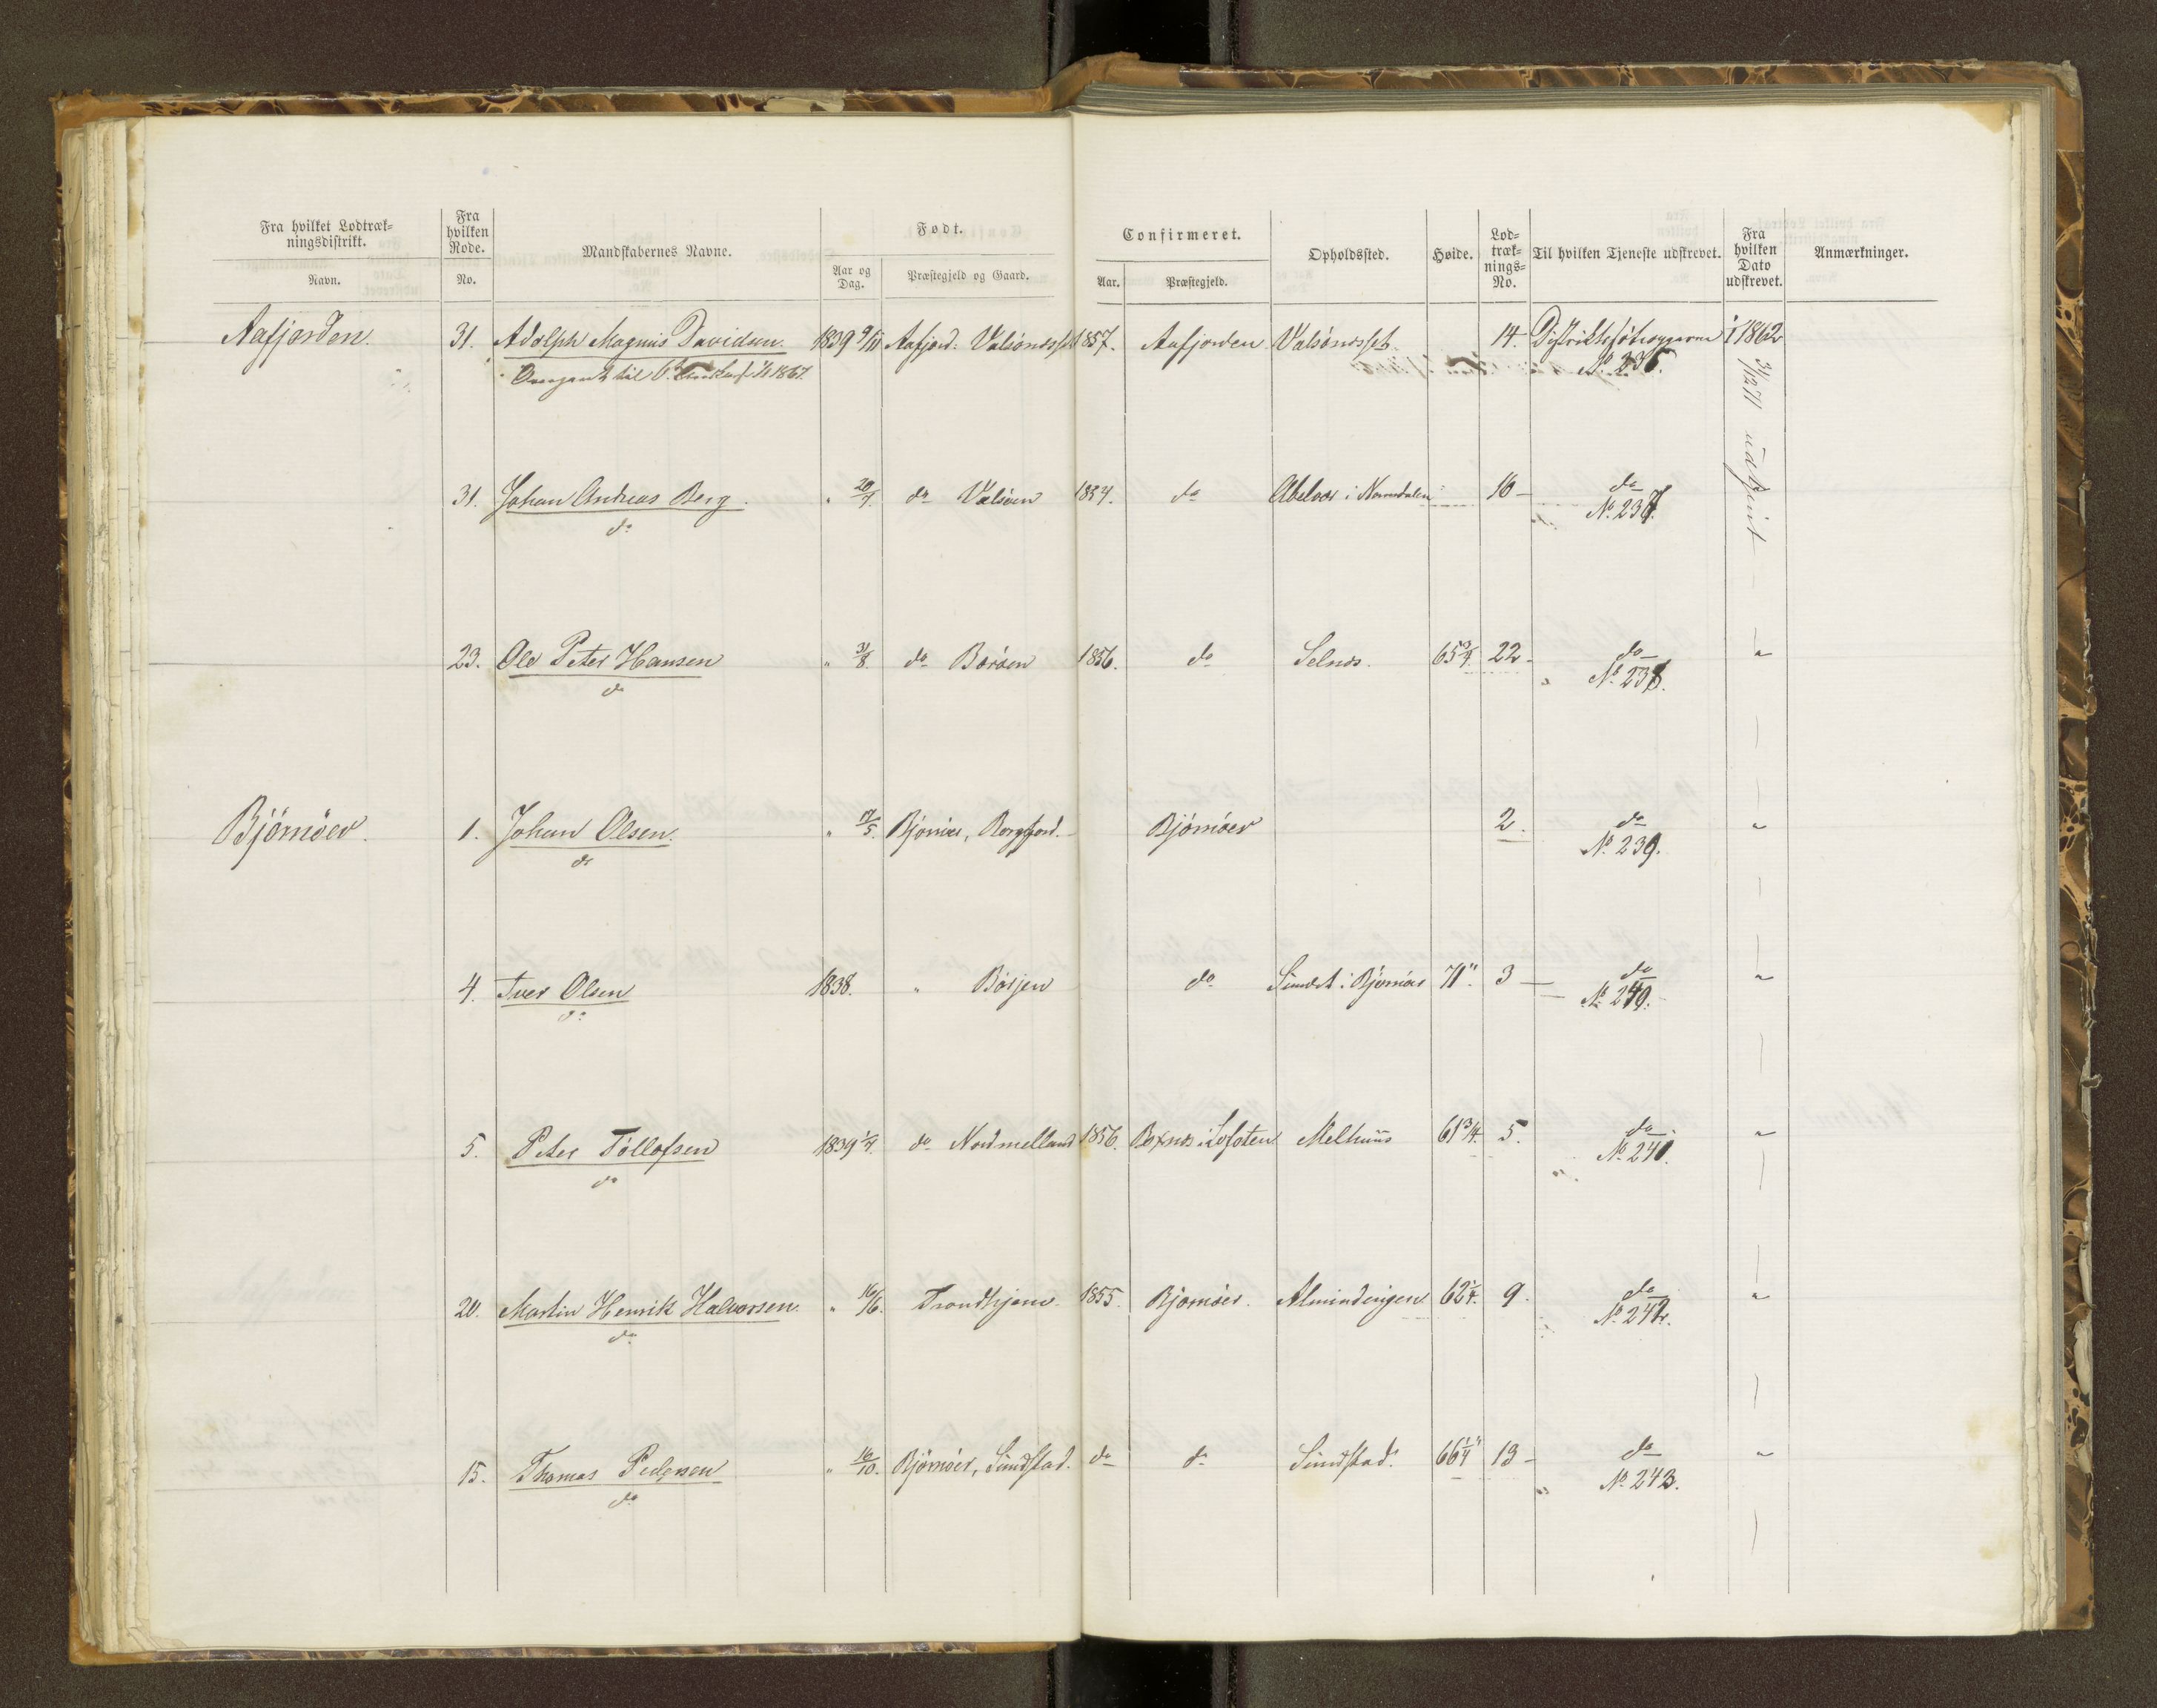 Fra hvilket Lodtræk-
ningsdistrikt.
Navn.
Fra
hvilken
Rode.
No.
Mandskabernes Navne.
Født.
Aar og
Dag.
Præstegjeld og Gaard.
Confirmeret.
Aar.
Præstegjeld.
Opholdssted.
Høide.
Lod-
træk-
nings-
No.
Til hvilken Tjeneste udskrevet.
Fra
hvilken
Dato
udskrevet.
Anmærkninger.
Aafjorden. 31. Adolph Magnus Davidsen. 1839 9/11 Aafjord. Valsøneset 1857. Aafjorden Valsøneset 14. 1862
Overgaaet til 1867. No 236.
31/12 71 udtjent
31. Johan Andreas Berg. " 20/7. do Valsøen 1854. do Abelvær i Namdalen 16 - do
do No 237.
23. Ole Peter Hansen " 31/8. do Borøen 1856. do Selnes. 65 3/4. 22 - do "
do No 238.
Bjørnøer. 1. Johan Olsen. " 17/5. Bjørnøer, Borgfjord. Bjørnøer 2. do "
do No 239.
4. Iver Olsen 1838. " Børjen do Sundet i Bjørnøer 71". 3 - do "
do No 240.
5. Peter Tøllefsen 1839 1/4. do Nordmelland 1856. i Lofoten Melhuus 61 3/4. 5. do "
do No 241.
20. Martin Henrik Halvorsen " 16/6. Trondhjem 1855. Bjørnøer. Almindingen 62 1/4. 9. do "
do No 242.
15. Thomas Pedersen " 16/10. Bjørnøer, Sundstad. do do Sundstad. 66 1/4" 13 - do "
do No 243.